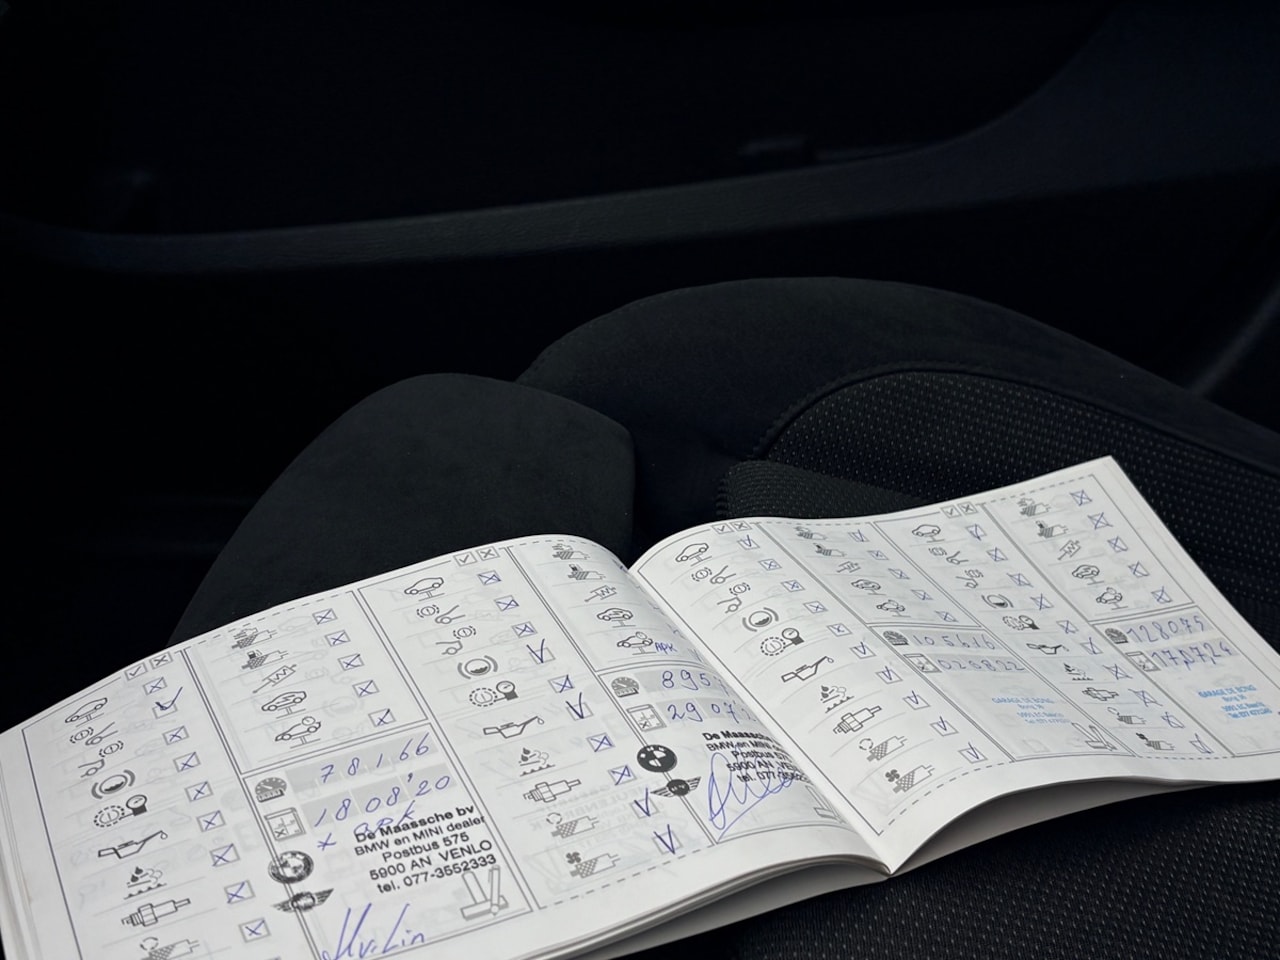 78166
18 08 20
+ APK
De Maassche bv
BMW en MINI dealer
Postbus 575
5900 AN VENLO
tel. 077-3552333
APK
895
29 07
De Maassche
BMW en MINI
Postbus 57
5900 AN VE
tel. 077-3552
105616
020822
128075
170724
GARAGE DE BONG